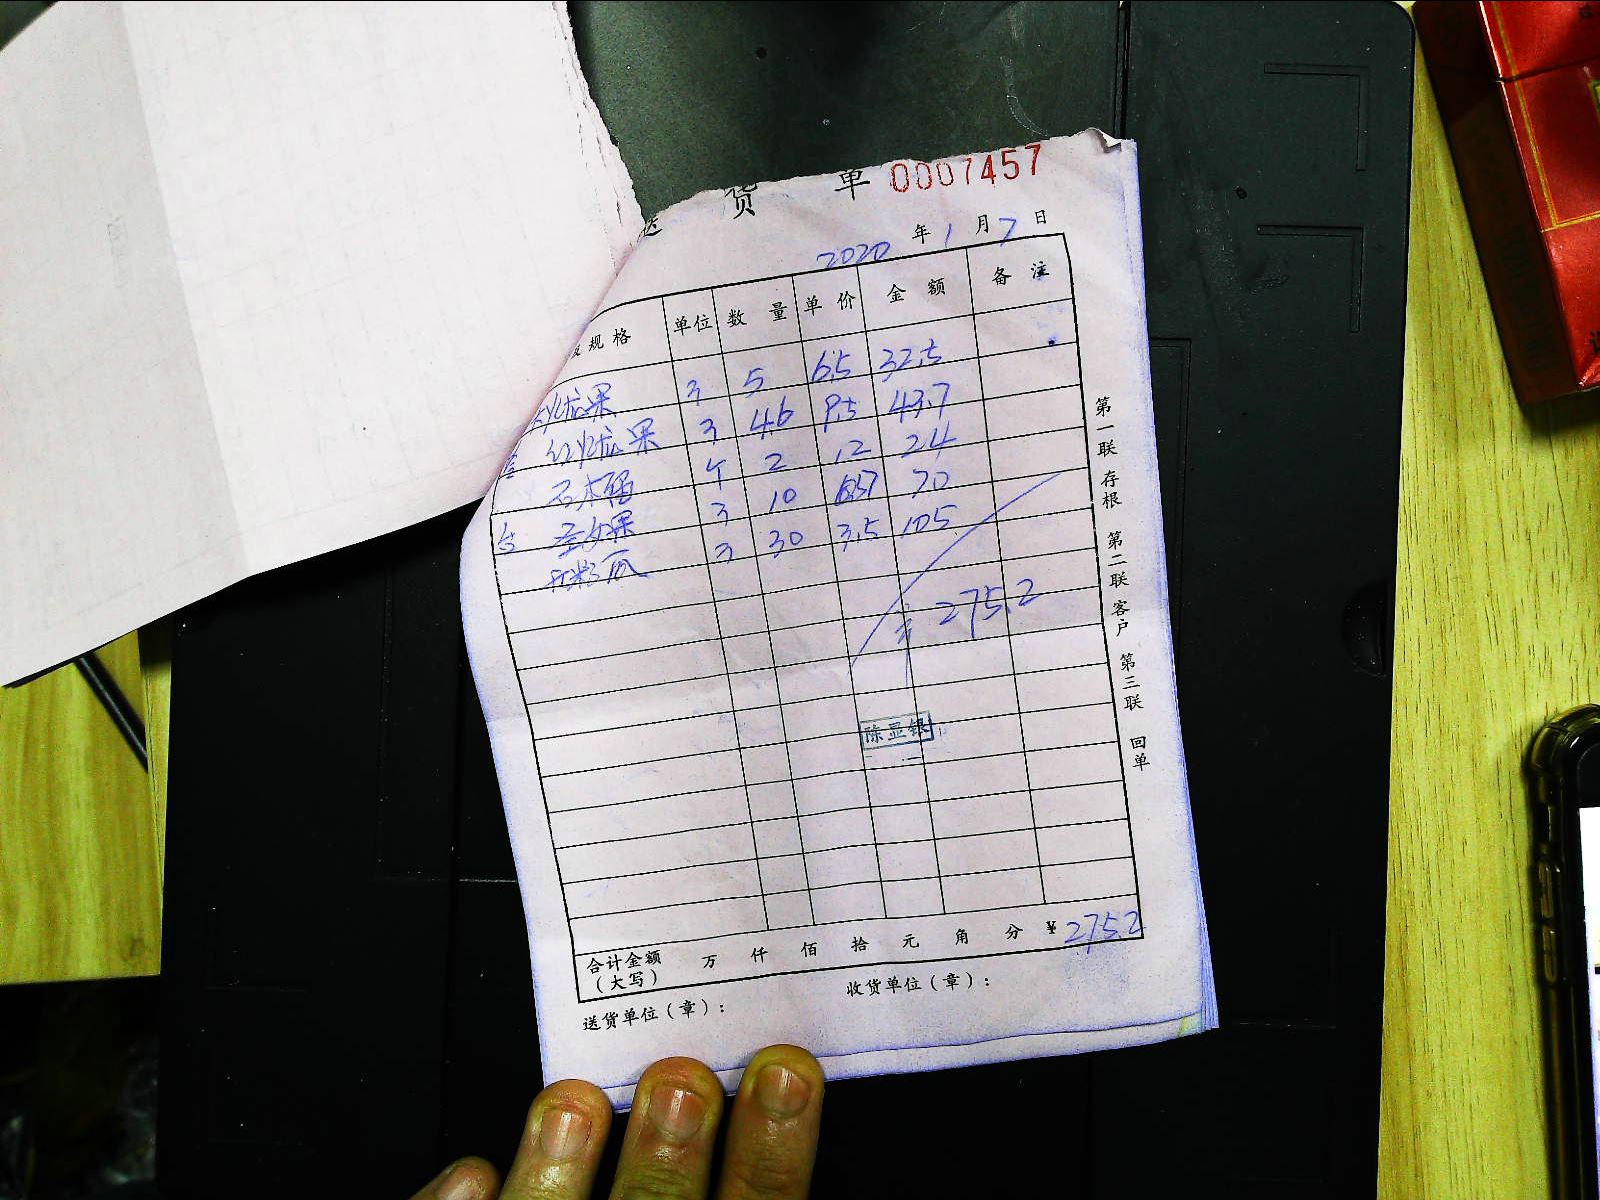 货 单 0007457
2020 年 1 月 7 日
规格 单位 数量 单价 金额 备注
火龙果 斤 5 6.5 32.5
红火龙果 斤 4.6 9.5 43.7
石榴 个 2 12 24
圣女果 斤 10 70
斤 30 3.5 105
275.2
陈显银
合计金额（大写） 万 仟 佰 拾 元 角 分 ¥ 275.2
送货单位（章）： 收货单位（章）：
第一联 存根 第二联 客户 第三联 回单